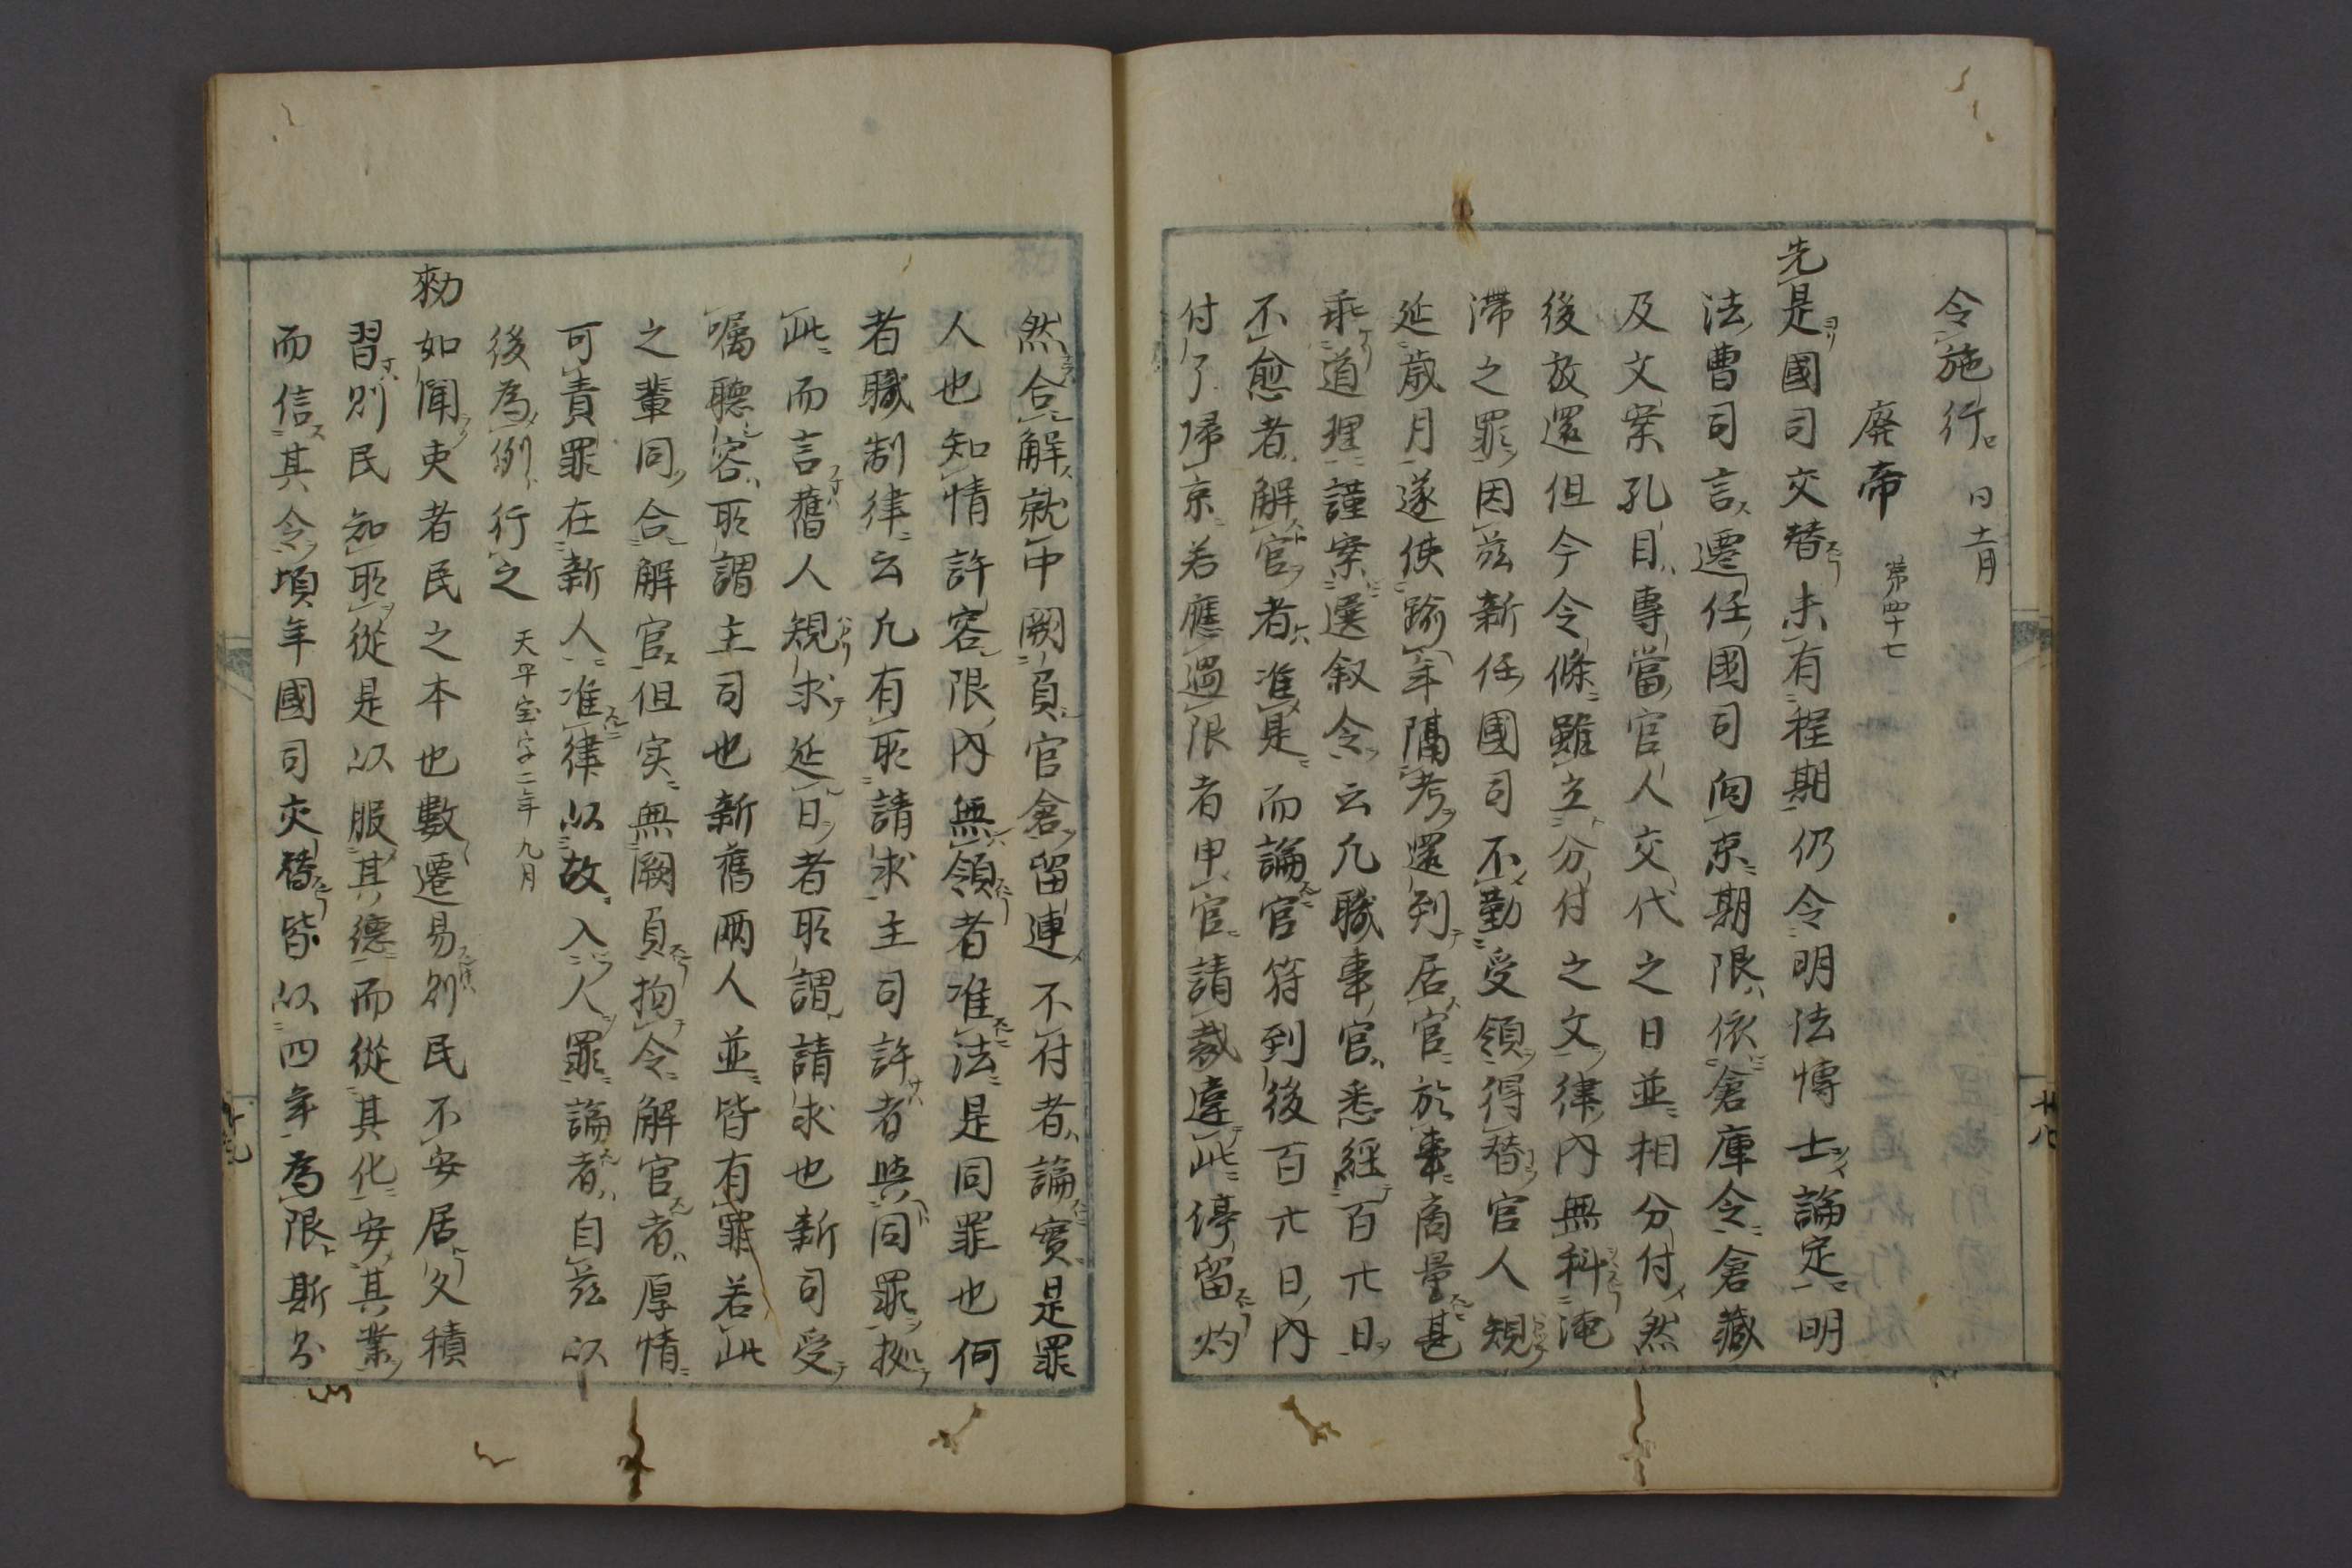 令施行 同十一月
廃帝 第四十七
先是國司交替未有程期仍令明法博士論定明
法曹司言遷任國司向京期限依倉庫令倉藏
及文案孔目專當官人交代之日並相分付然
後放還但今令條雖立分付之文律內無科淹
滯之罪因茲新任國司不勤受領得替官人規
延歳月遂使踰年隔考還到居官於事商量甚
乖道理謹案選叙令云凢職事官悉經百廿日
不愈者解官者准是而論官符到後百廿日內
付了帰京若應過限者申官請裁違此停留灼
廿八
然合解就中闕負官倉留連不付者論實是罪
人也知情許容限內無領者准法是同罪也何
者職制律云凢有所請求主司許者與同罪拠
此而言舊人規求延日者所謂請求也新司受
嘱聴容所謂主司也新舊兩人並皆有罪若此
之輩同合解官但実無闕負拘令解官者厚情
可責罪在新人准律以故入人罪論者自茲以
後為例行之 天平宝字二年九月
勅如聞吏者民之本也數遷易則民不安居久積
習則民知所從是以服其德而從其化安其業
而信其令頃年國司交替皆以四年為限斯尓
十九